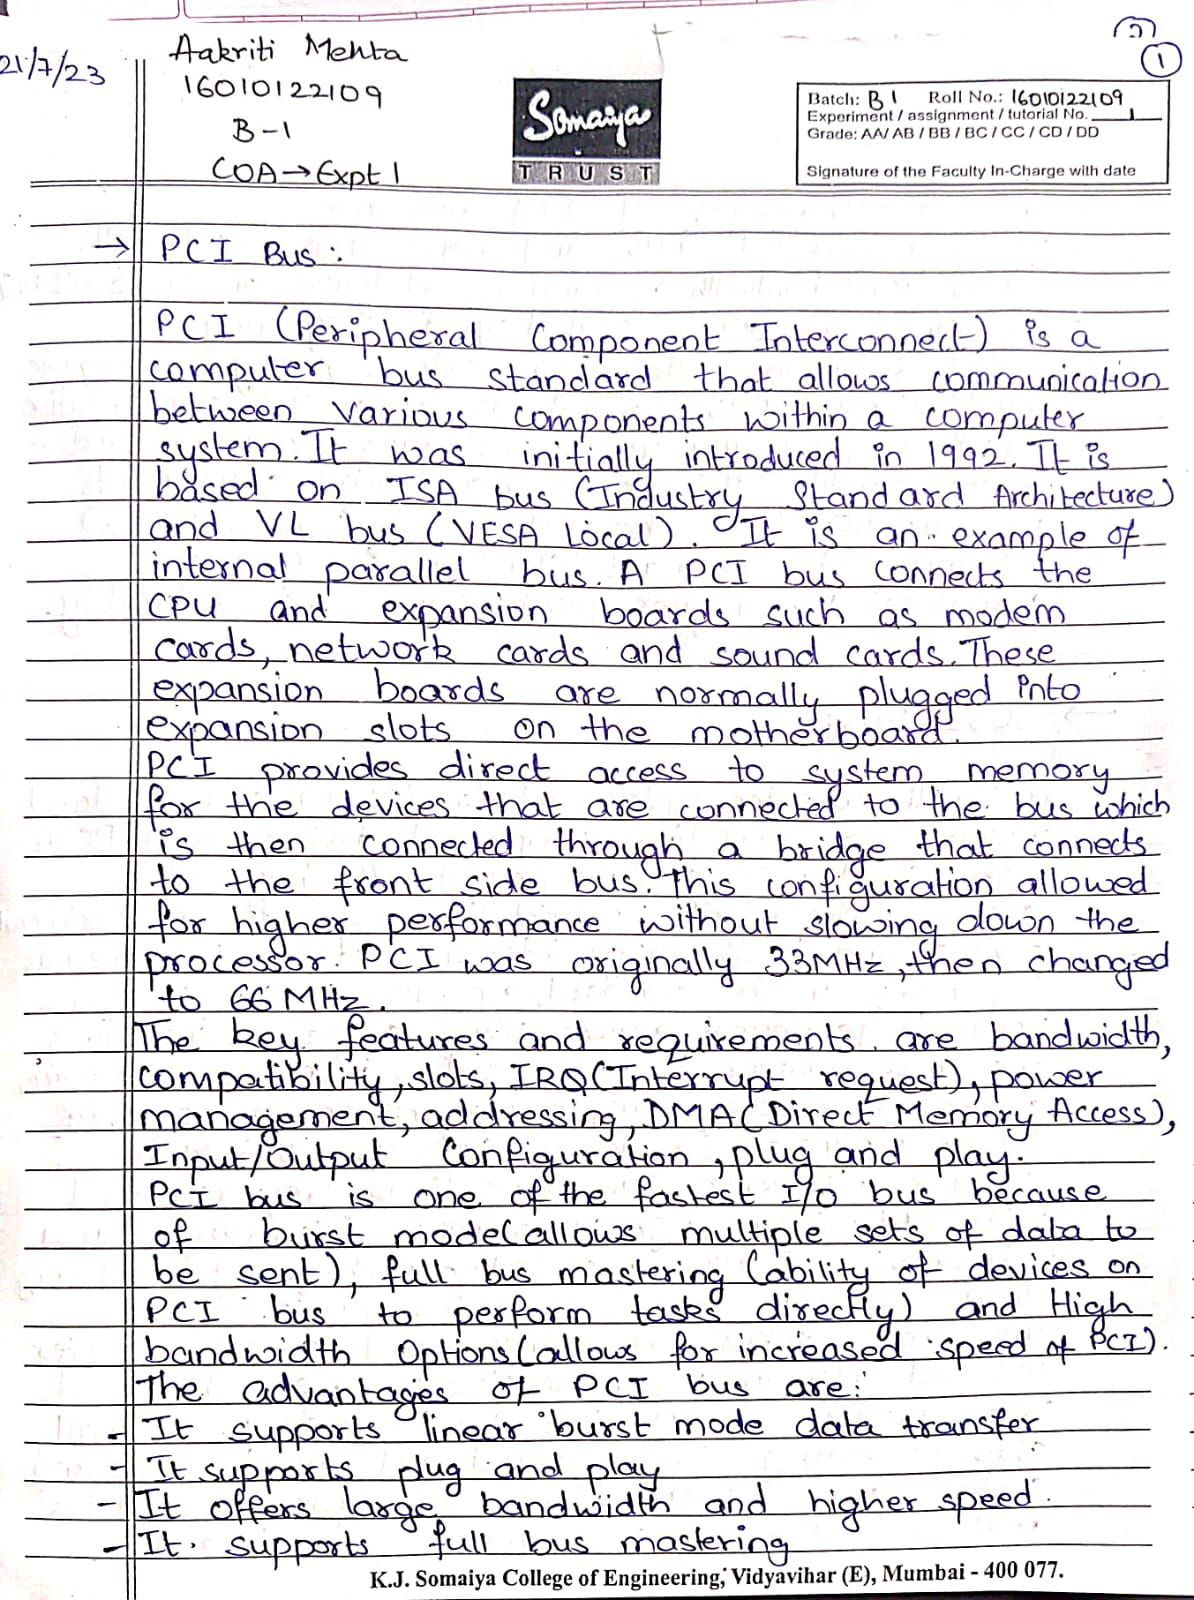 21/7/23
Aakriti Mehta
16010122109
B-1
COA→Expt 1
Somaiya
TRUST
1
Batch: B1 Roll No.: 16010122109
Experiment / assignment / tutorial No. 1
Grade: AA/ AB / BB / BC / CC / CD / DD
Signature of the Faculty In-Charge with date
→ PCI Bus :
PCI (Peripheral Component Interconnect) is a
computer bus standard that allows communication
between various components within a computer
system. It was initially introduced in 1992. It is
based on ISA bus (Industry Standard Architecture)
and VL bus (VESA Local). It is an example of
internal parallel bus. A PCI bus connects the
CPU and expansion boards such as modem
cards, network cards and sound cards. These
expansion boards are normally plugged into
expansion slots on the motherboard.
PCI provides direct access to system memory
for the devices that are connected to the bus which
is then connected through a bridge that connects
to the front side bus. This configuration allowed
for higher performance without slowing down the
processor. PCI was originally 33MHz, then changed
to 66 MHz.
The key features and requirements are bandwidth,
compatibility, slots, IRQ(Interrupt request), power
management, addressing, DMA(Direct Memory Access),
Input/Output Configuration, plug and play.
PCI bus is one of the fastest I/O bus because
of burst mode(allows multiple sets of data to
be sent), full bus mastering (ability of devices on
PCI bus to perform tasks directly) and High
bandwidth Options(allows for increased speed of PCI).
The advantages of PCI bus are:
- It supports linear burst mode data transfer
- It supports plug and play
- It offers large bandwidth and higher speed.
- It supports full bus mastering
K.J. Somaiya College of Engineering, Vidyavihar (E), Mumbai - 400 077.